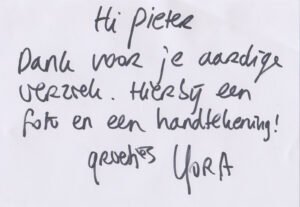 Hi Pieter
Dank voor je aardige
verzoek. Hierbij een
foto en een handtekening!
groetjes YORA